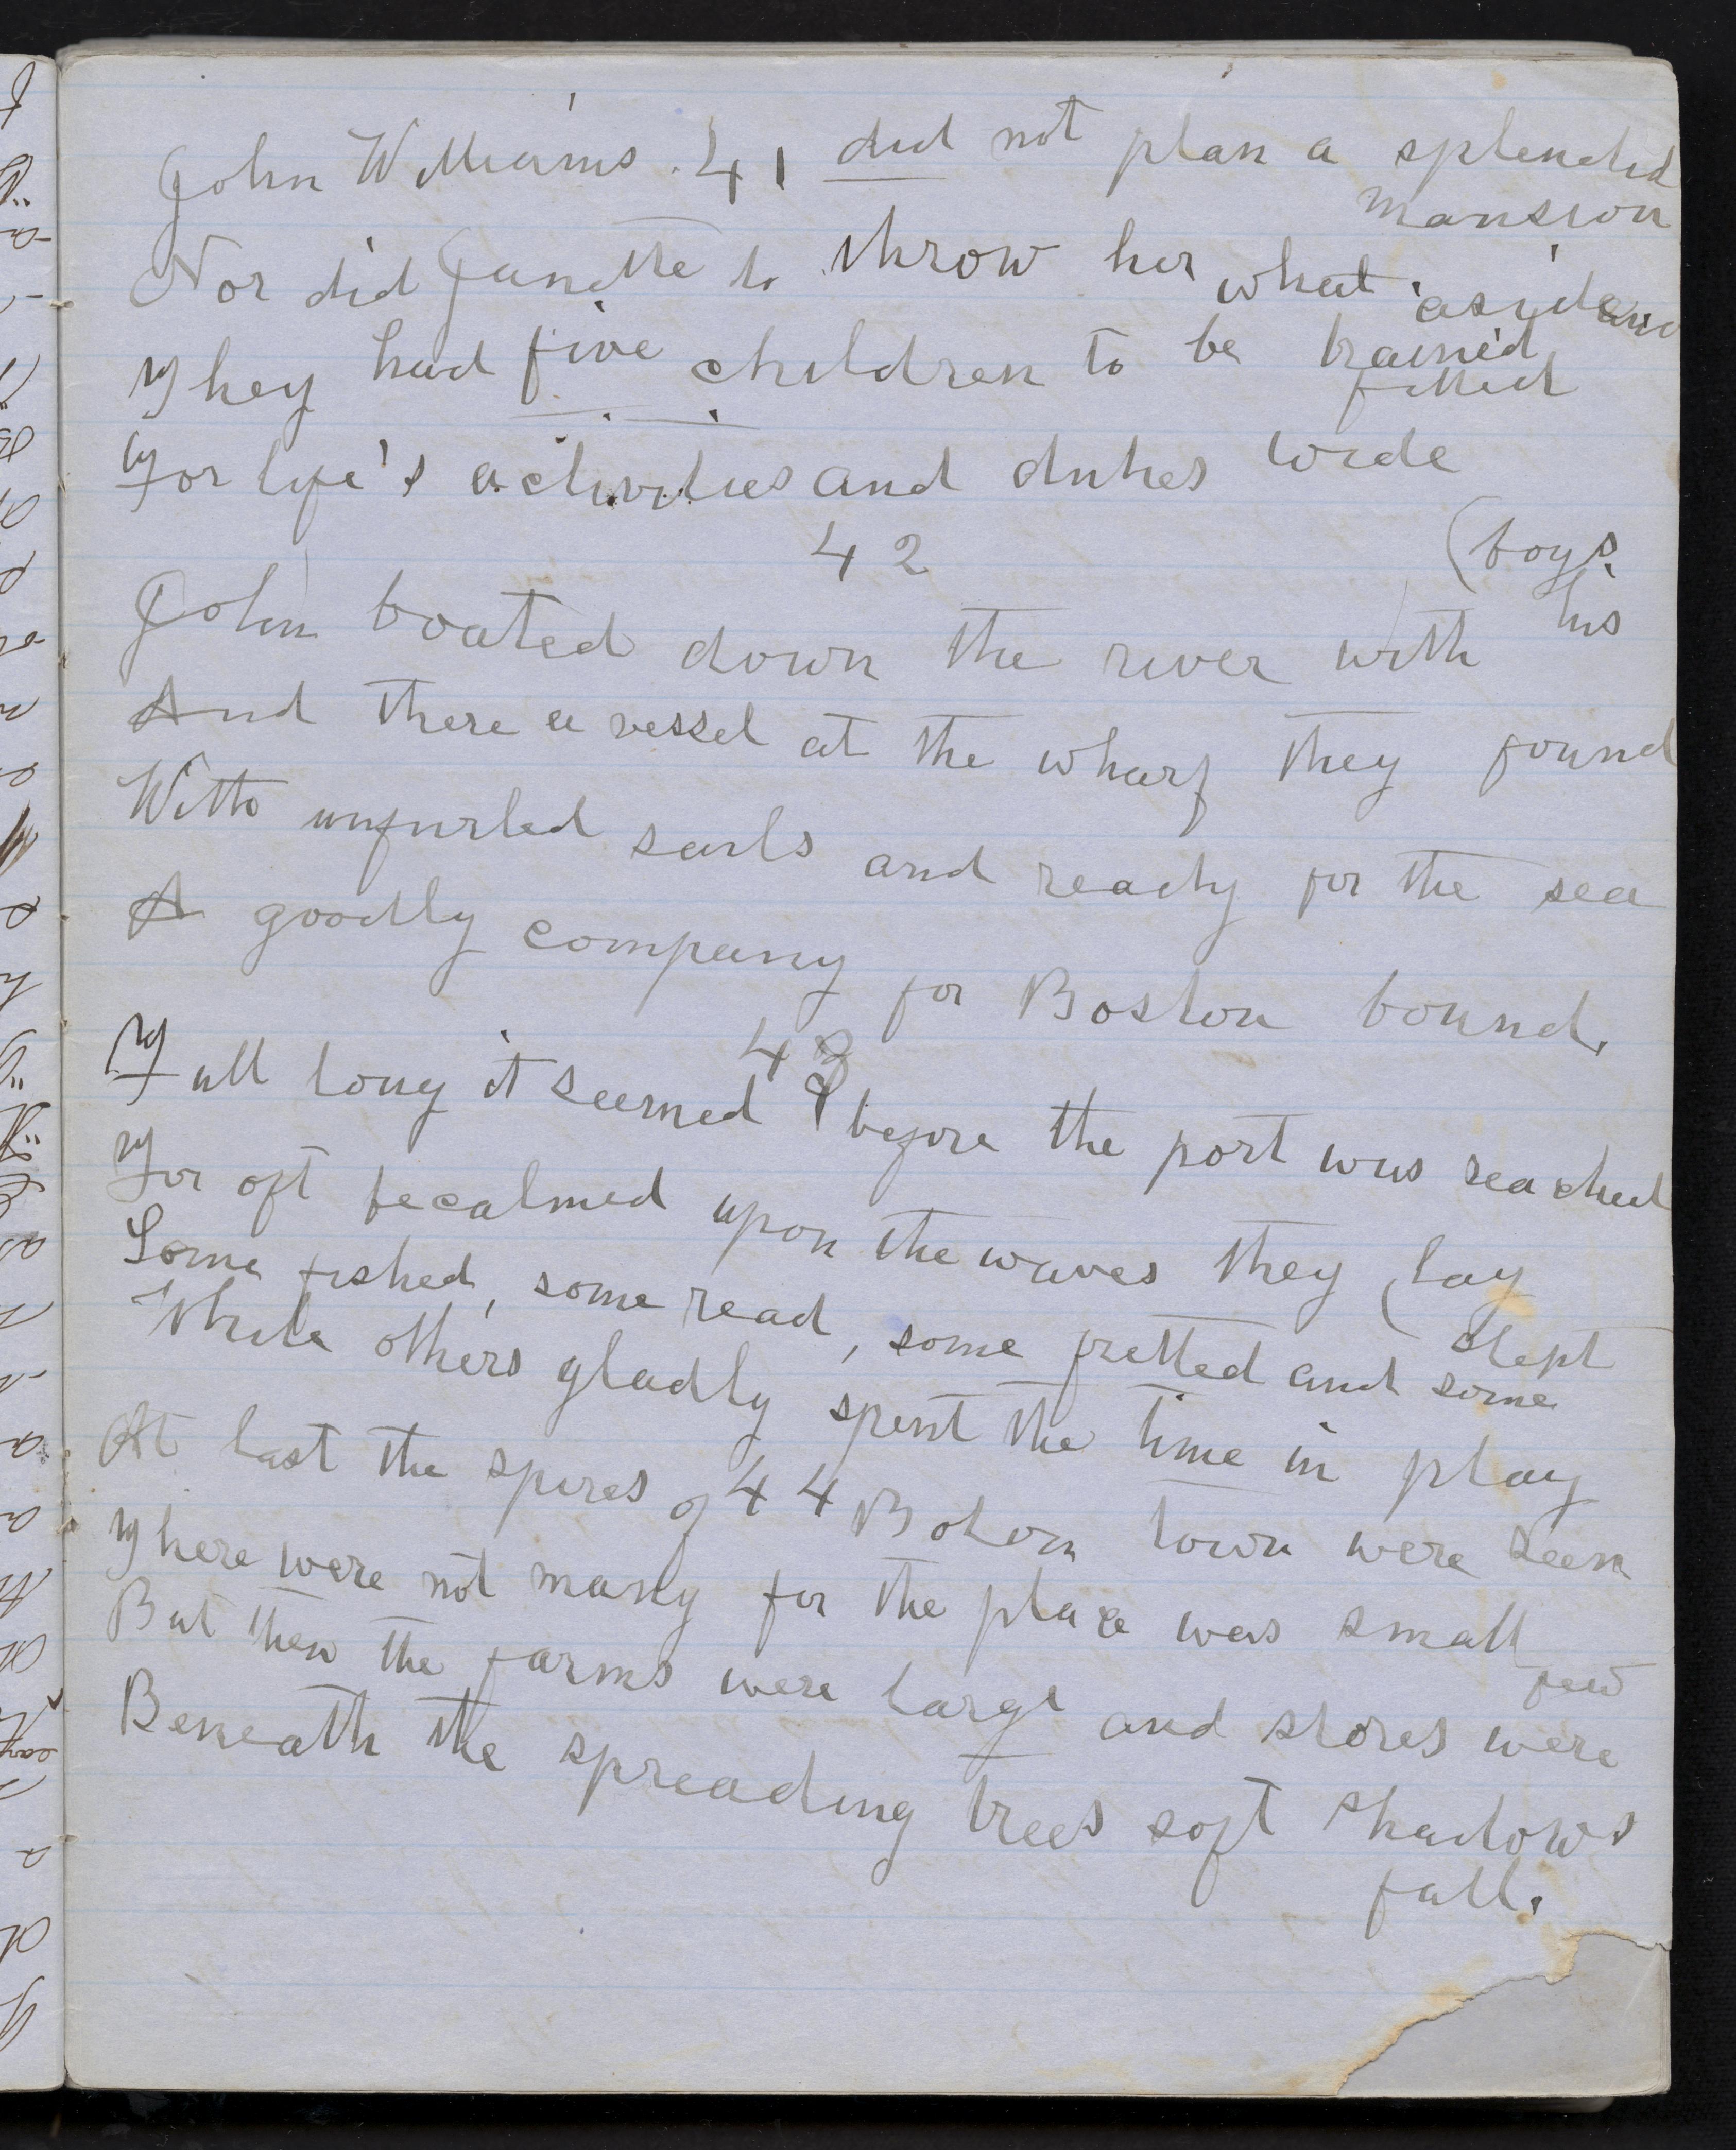 John Williams. 41 did not plan a splendid
mansion
Nor did Janette to throw her what aside
They had five children to be trained,
fitted
For life's activities and duties wide
42
(boys.
John boated down the river with his
And there a vessel at the wharf they found
With unfurled sails and ready for the sea
A goodly company for Boston bound.
43
Full long it seemed before the port was reached
For oft becalmed upon the waves they lay
Some fished, some read, some fretted and some
slept
While others gladly spent the time in play
44
At last the spires of Boton town were seen
There were not many for the place was small
But then the farms were large and stores were
few
Beneath the spreading trees soft shadows
fall.